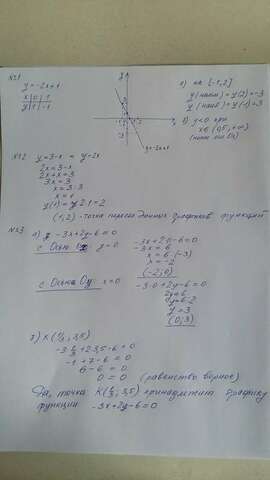 №1
y=-2x+1
x 0 1
y 1 -1
y=-2x+1
а) на [-1,2]
y(наим)=y(2)=-3
y(наиб)=y(-1)=3
б) y<0 при
x∈(0,5,+∞)
(ниже оси Ox)
№2 y=3-x y=2x
2x=3-x
2x+x=3
3x=3
x=3:3
x=1
y(1)=2·1=2
(1,2) - точка пересеч данных графиков функций
№3 а) -3x+2y-6=0
с Осью Ox y=0
-3x+2·0-6=0
-3x=6
x=6:(-3)
x=-2
(-2;0)
с Осью Oy x=0
-3·0+2y-6=0
2y=6
y=6:2
y=3
(0;3)
б) K(1/3, 3,5)
-3·1/3+2·3,5-6=0
-1+7-6=0
6-6=0
0=0 (равенство верное)
Да, точка K(1/3, 3,5) принадлежит графику
функции -3x+2y-6=0